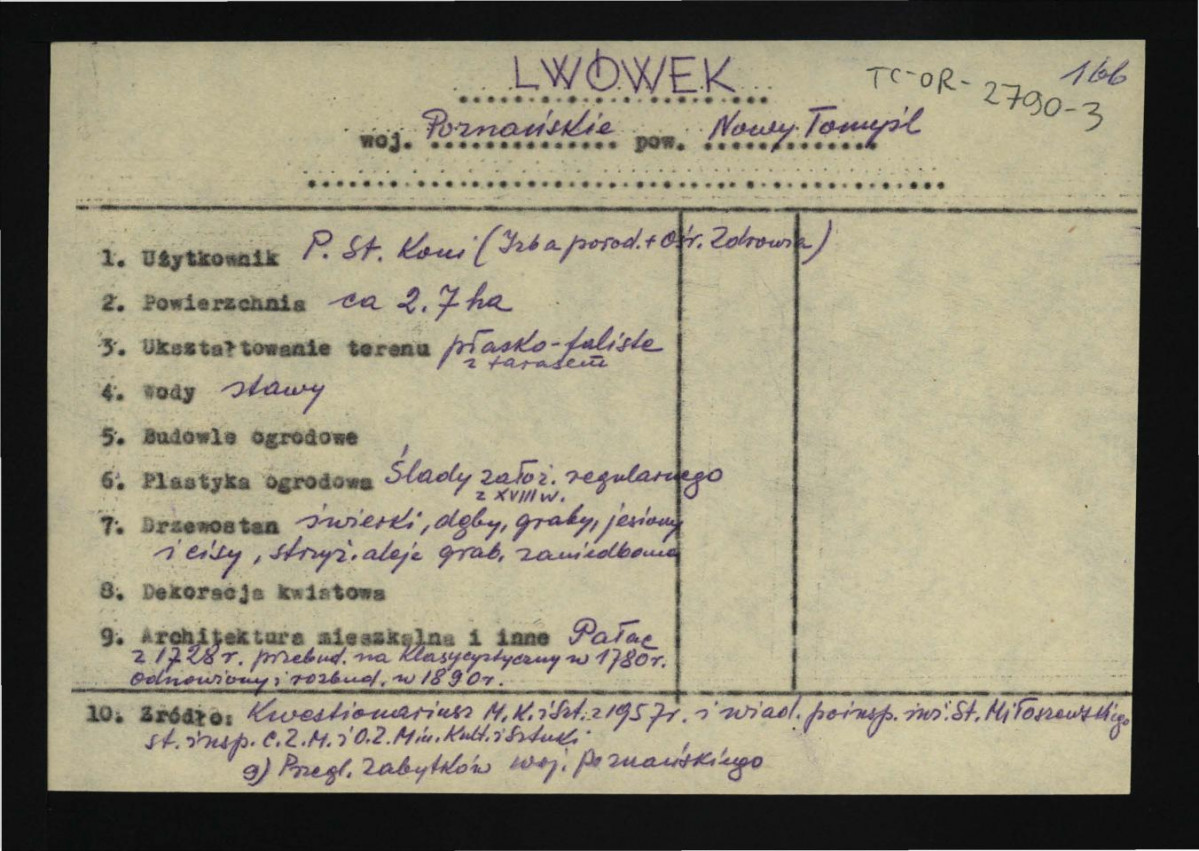 LWÓWEK
166
TC-OR-2790-3
woj. Poznańskie pow. Nowy Tomyśl
1. Użytkownik P. St. Koni (Izba porod. + Ośr. Zdrowia)
2. Powierzchnia ca 2.7 ha
3. Ukształtowanie terenu płasko-faliste
z tarasem
4. Wody stawy
5. Budowle ogrodowe
6. Plastyka ogrodowa Ślady założ. regularnego
z XVIII w.
7. Drzewostan świerki, dęby, graby, jesiony
i cisy, strzyż. aleje grab. zaniedbana
8. Dekoracja kwiatowa
9. Architektura mieszkalna i inne Pałac
z 1728 r. przebud. na klasycystyczny w 1780 r.
odnowiony i rozbud. w 1890 r.
10. Źródło: Kwestionariusz M.K. i Szt. z 1957 r. i wiad. poinsp. inż. St. Miłoszewskiego
st. insp. C.Z.M. i O.Z. Min. Kult. i Sztuki
9) Przegl. Zabytków woj. Poznańskiego